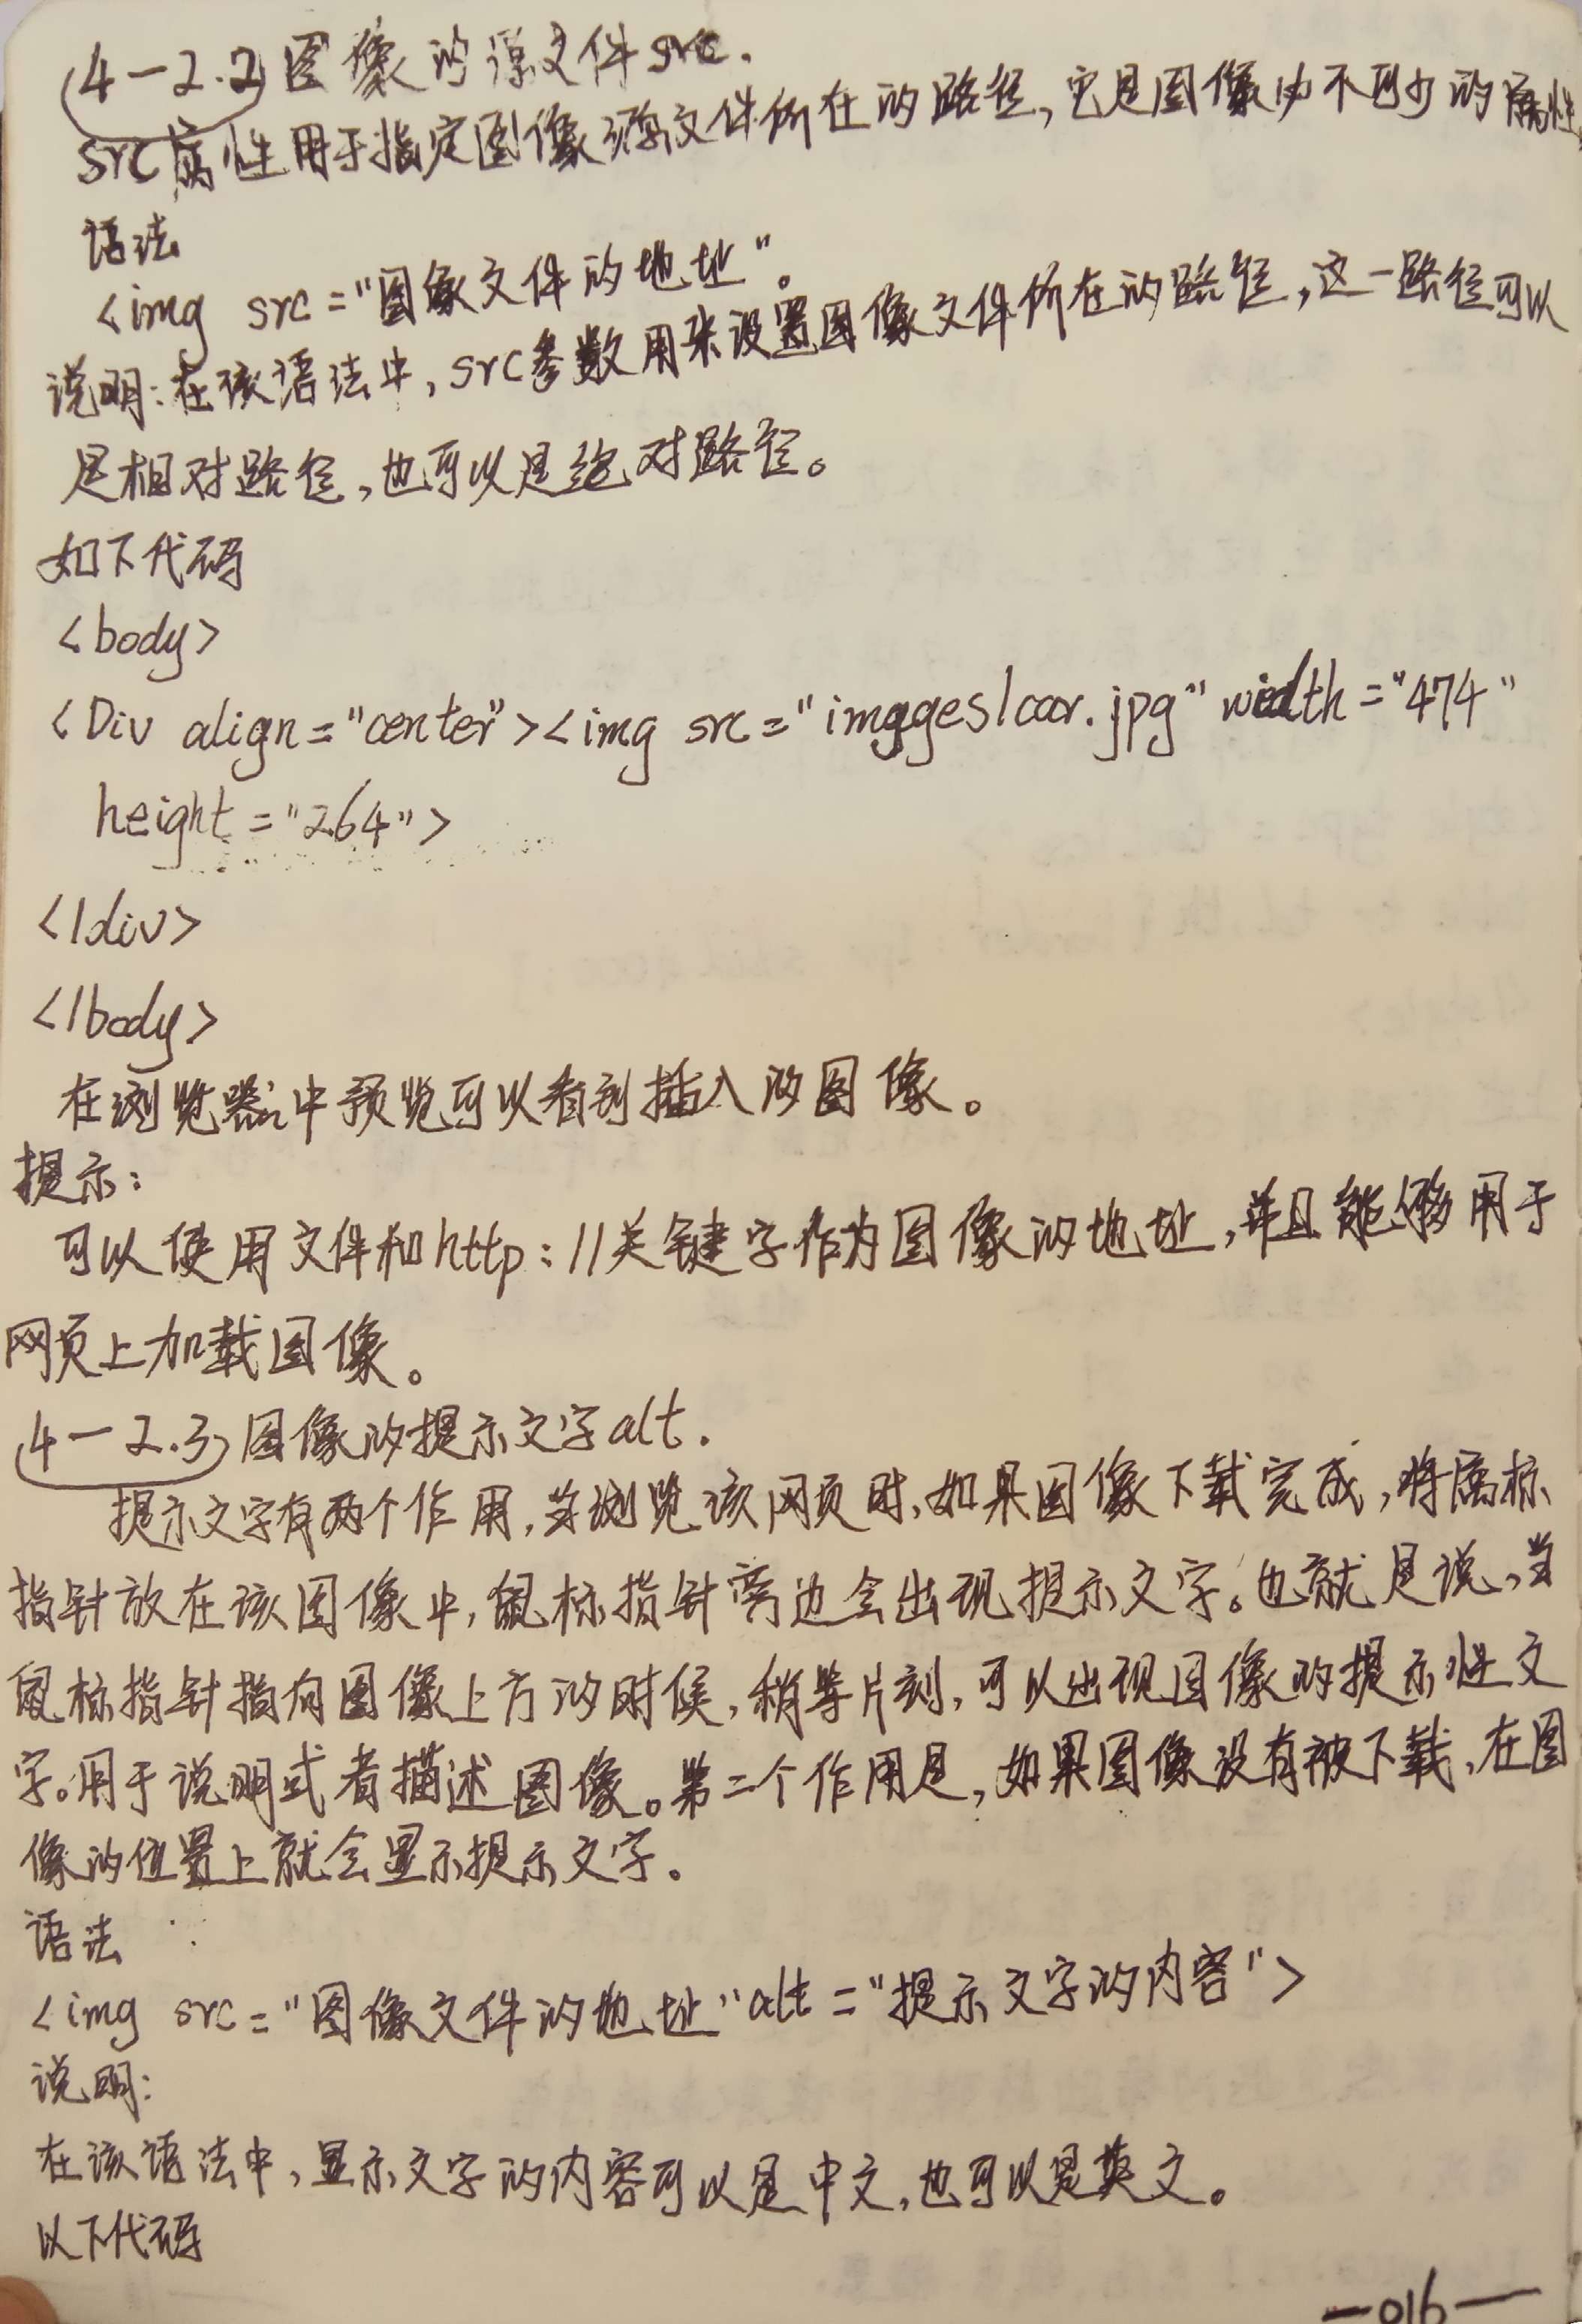 4-2.2 图像的源文件src.
src属性用于指定图像源文件所在的路径,它是图像必不可少的属性
语法
<img src="图像文件的地址"。
说明:在该语法中,src参数用来设置图像文件所在的路径,这一路径可以
是相对路径,也可以是绝对路径。
如下代码
<body>
<Div align="center"><img src="imgges/car.jpg" width="474"
height="264">
</div>
</body>
在浏览器中预览可以看到插入的图像。
提示:
可以使用文件和http://关键字作为图像的地址,并且能够用于
网页上加载图像。
4-2.3 图像的提示文字alt.
提示文字有两个作用,当浏览该网页时,如果图像下载完成,将鼠标
指针放在该图像中,鼠标指针旁边会出现提示文字。也就是说,当
鼠标指针指向图像上方的时候,稍等片刻,可以出现图像的提示性文
字。用于说明或者描述图像。第二个作用是,如果图像没有被下载,在图
像的位置上就会显示提示文字。
语法
<img src="图像文件的地址"alt="提示文字的内容">
说明:
在该语法中,显示文字的内容可以是中文,也可以是英文。
以下代码
—016—